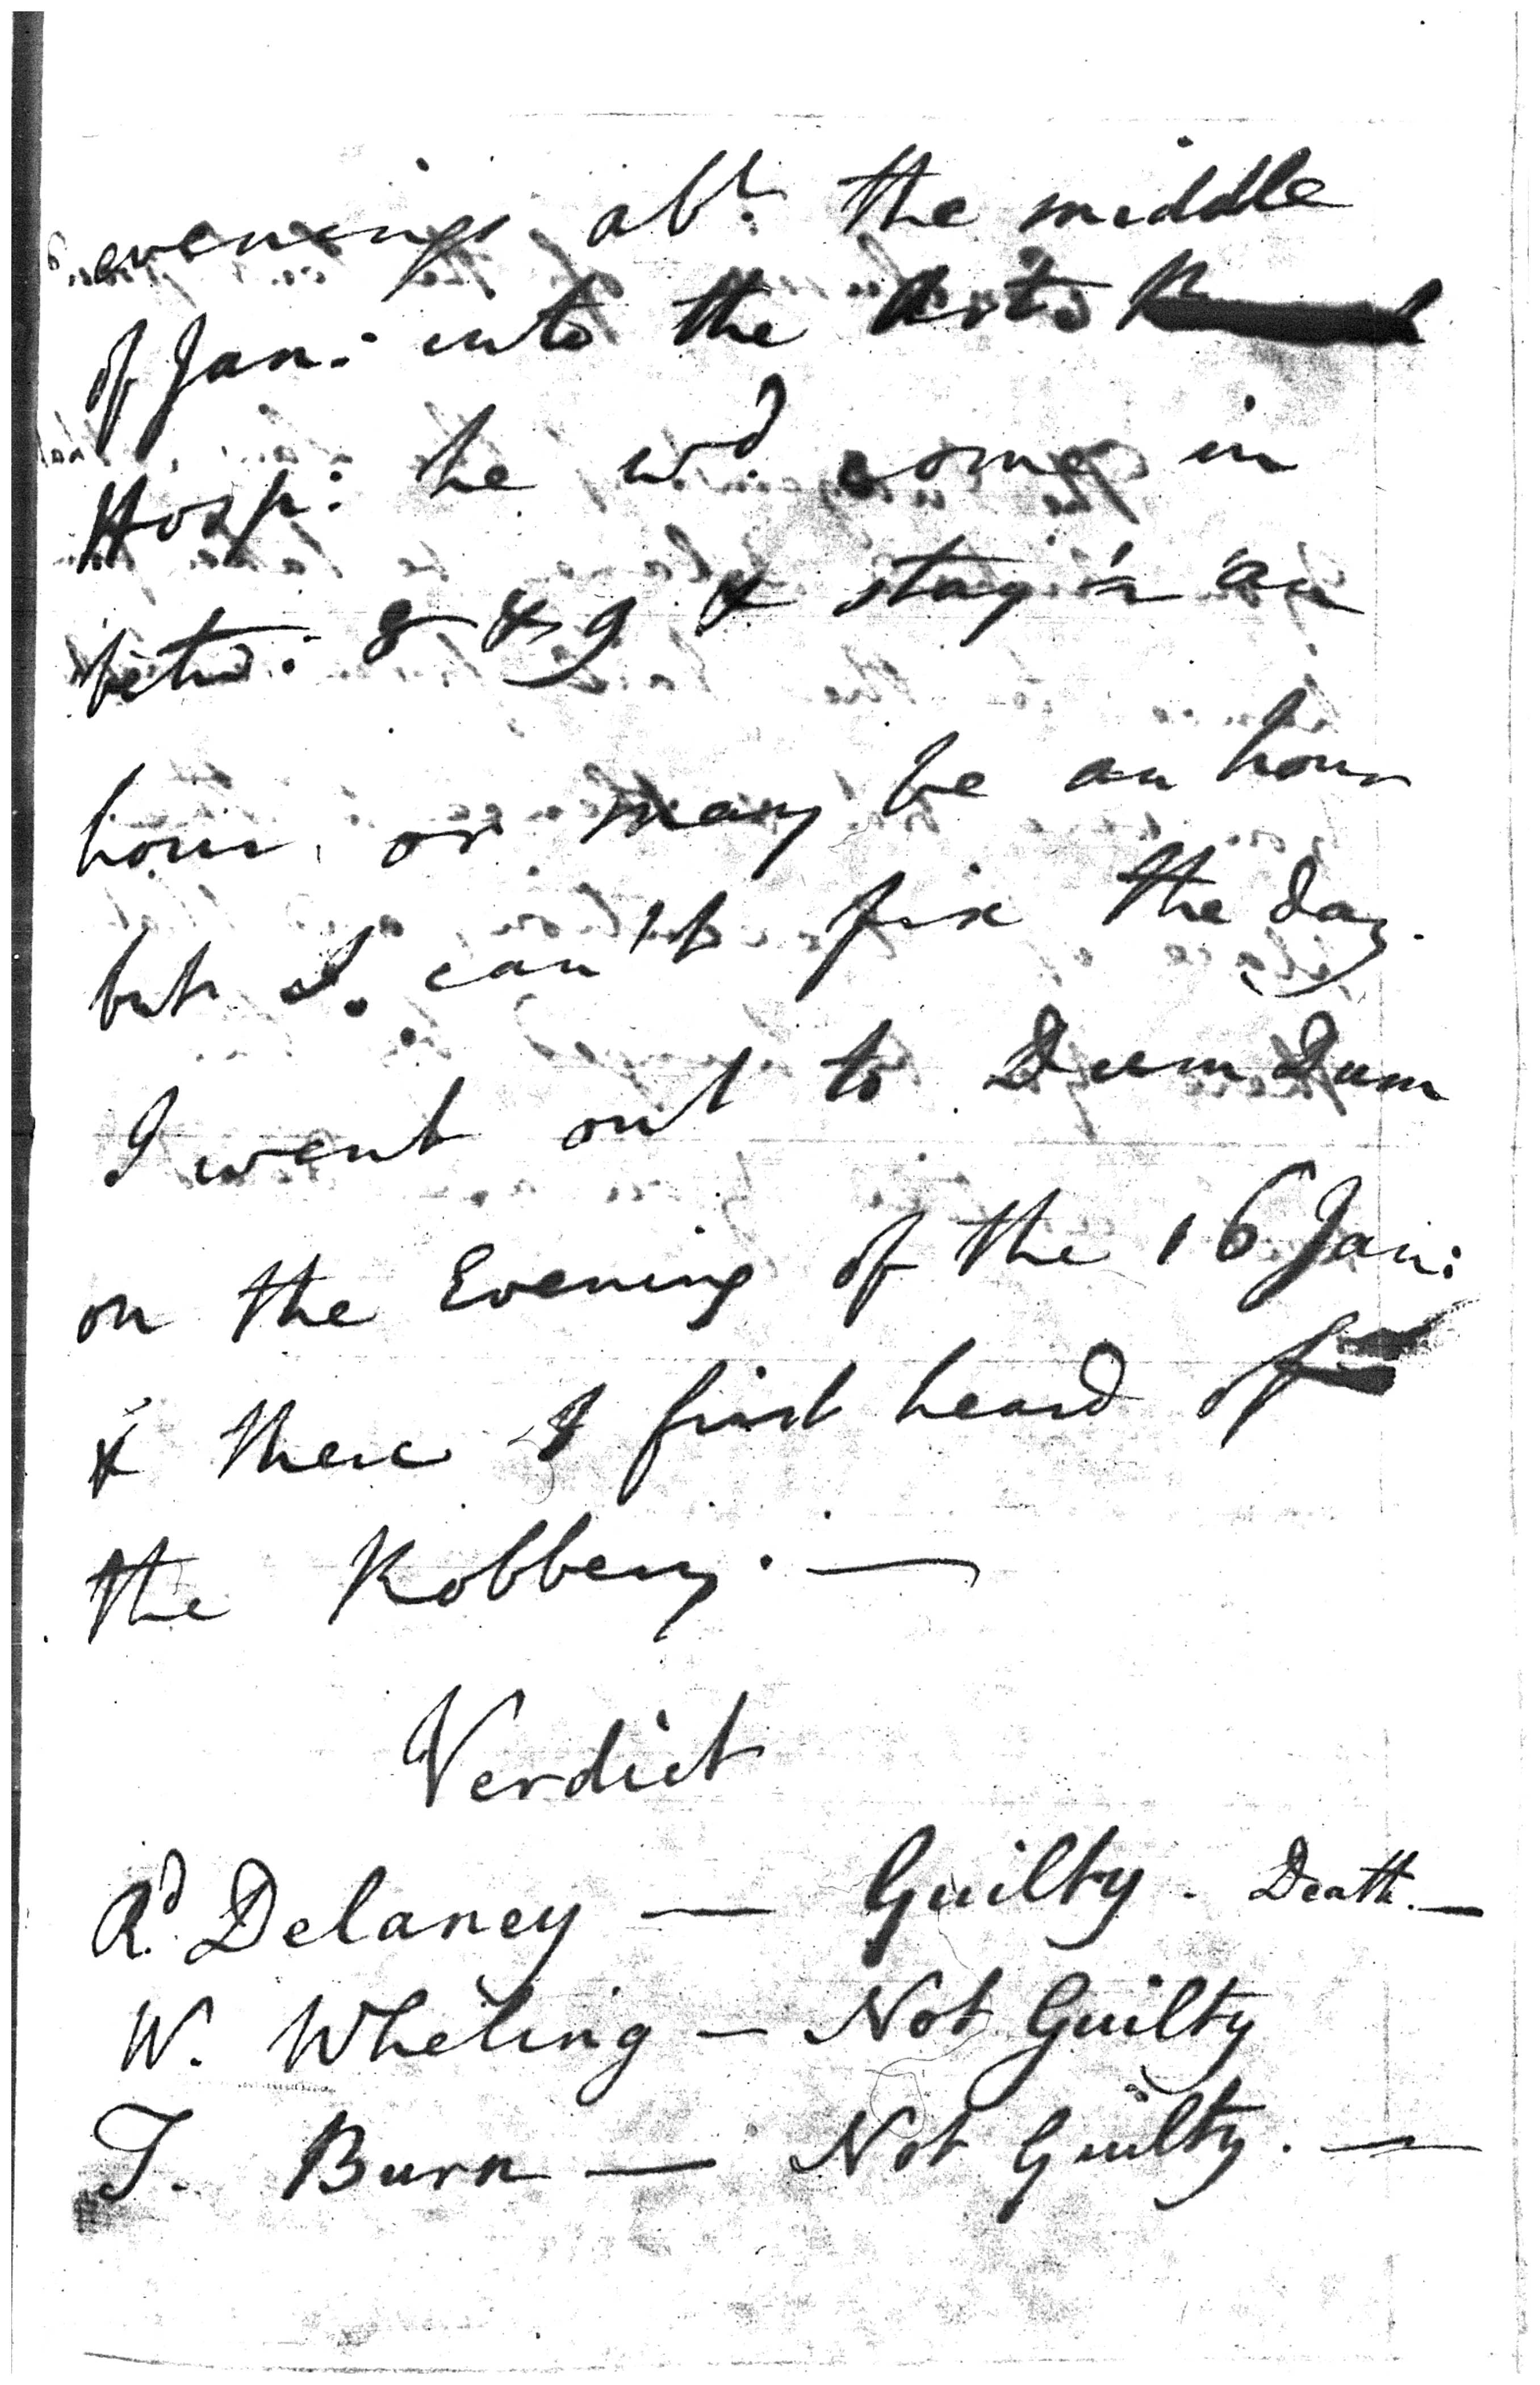 evenings abt. the middle
of Jan: into the Arty
Hosp: he wd. come in
betw: 8 & 9 & stay'd an
hour, or may be an hour
but I can't fix the day.
I went out to Dum Dum
on the Evening of the 16 Jan:
& there I first heard of
the Robbery. —
Verdict
Rd. Delaney — Guilty. Death. —
W. Wheling — Not Guilty
T. Burn — Not Guilty. —